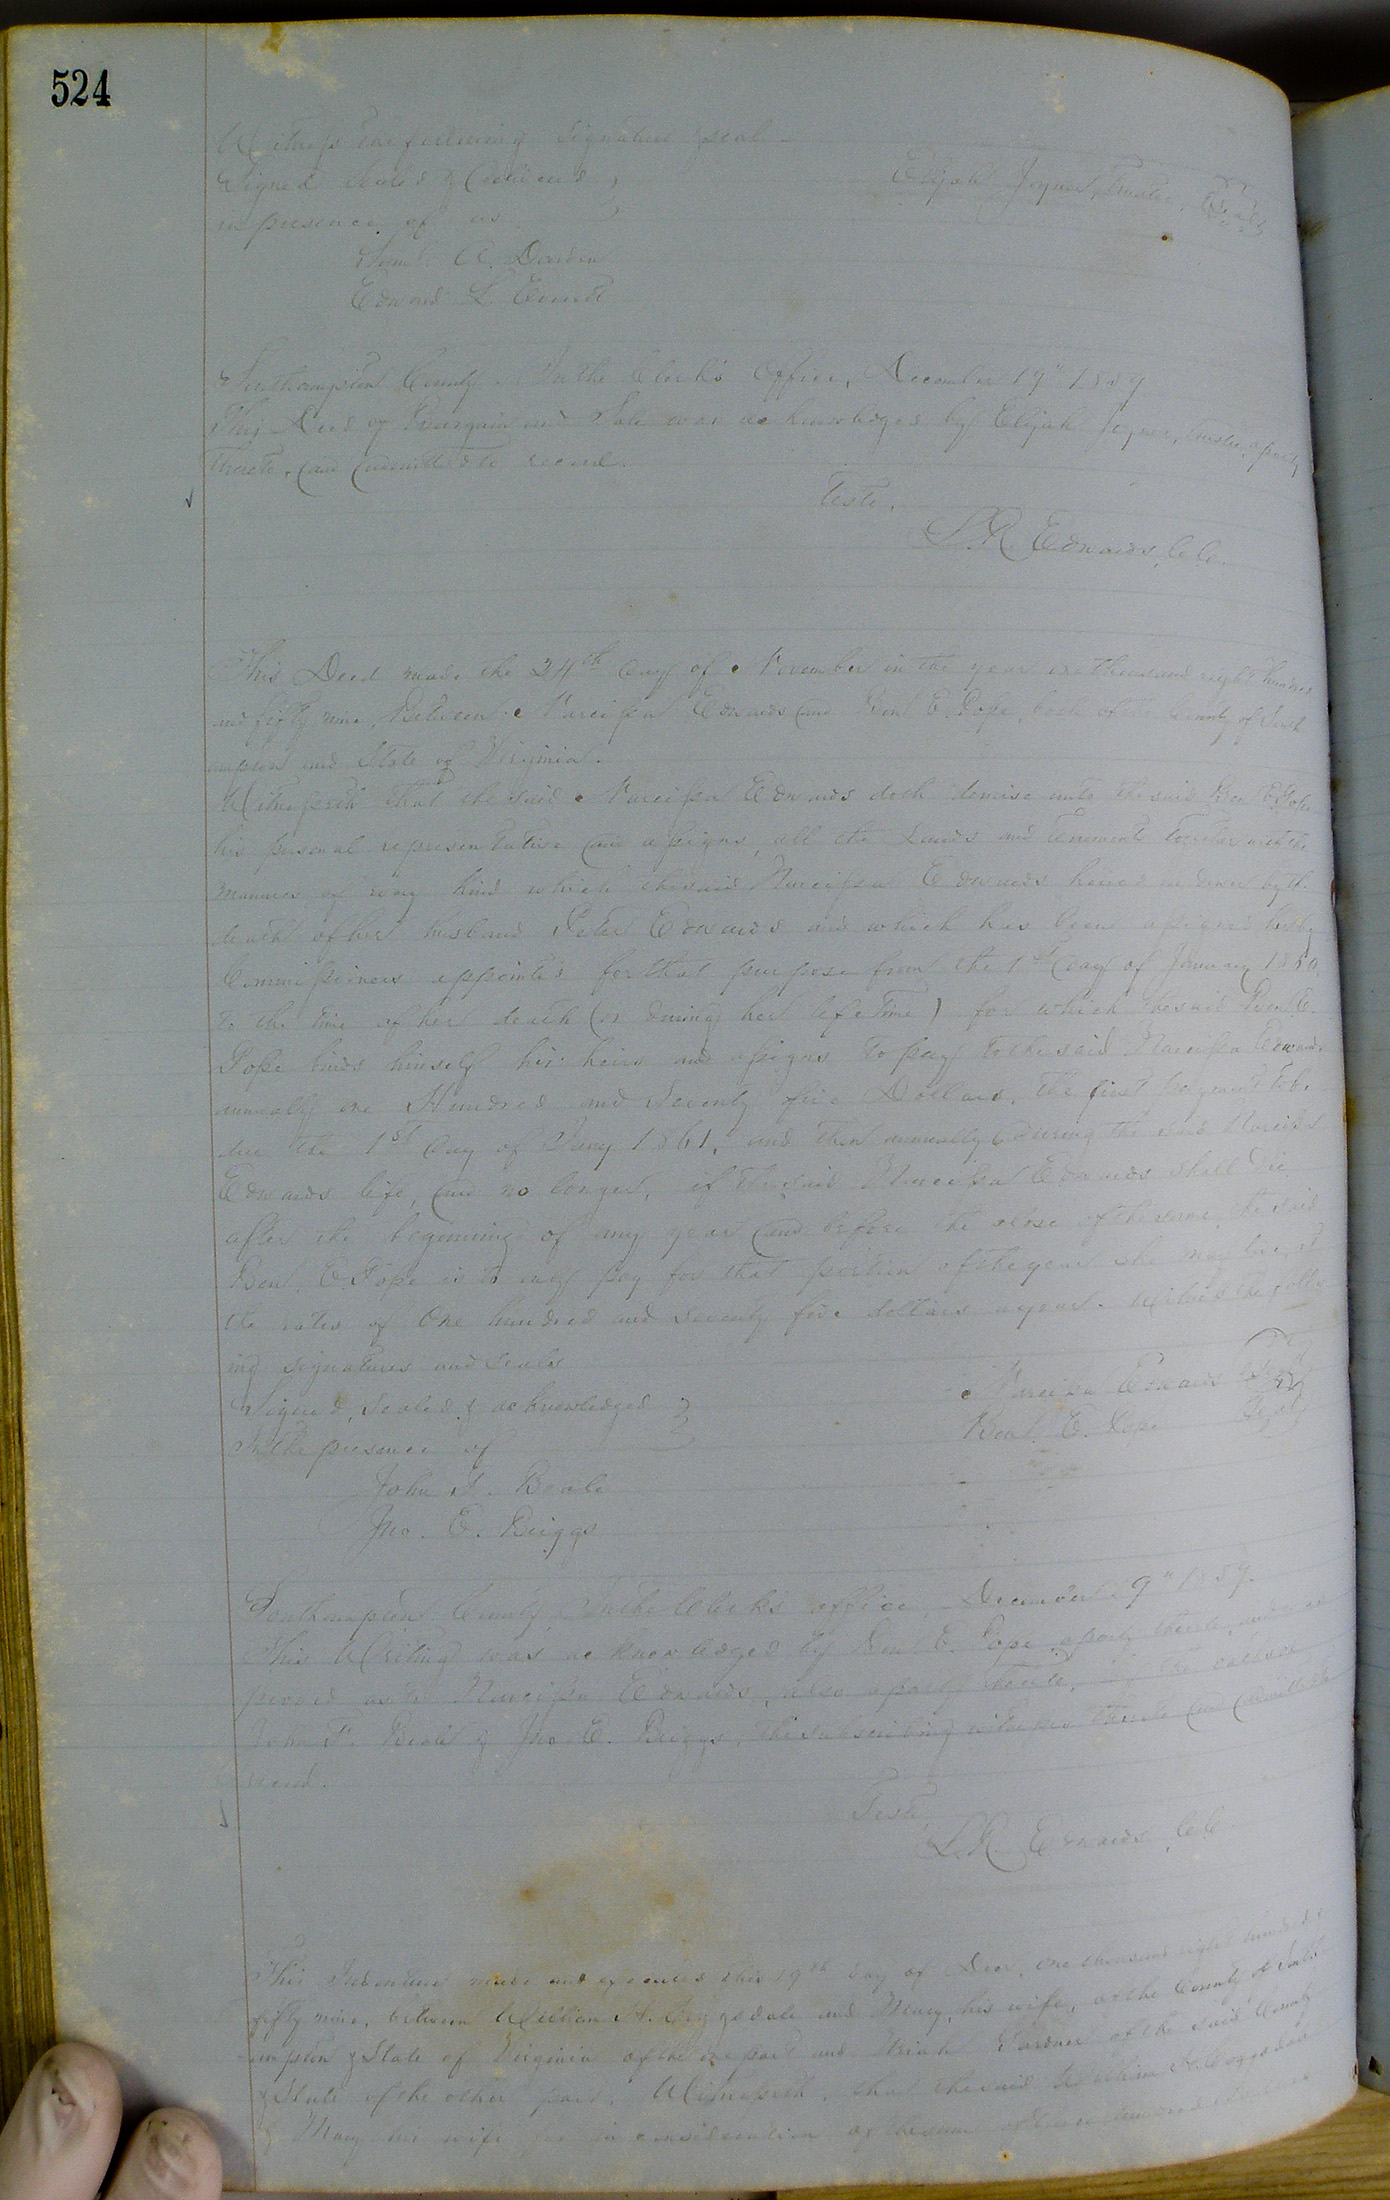 524
Witness the following Signature & seal
Signed Sealed & Delivered
in presence of us
Elijah Joyner, Trustee, Seal
A. Darden
Edward L.
Southampton County. In the Clerk's Office, December 19" 1859
This Deed of Bargain and Sale was acknowledged by Elijah Joyner, trustee, a party
thereto, and admitted to record.
Teste,
L. R. Edwards, C.C.
This Deed made the 24th day of November in the year one thousand eight hundred
and fifty nine, Between Narcissa Edwards and Benj. E. Pope, both of the County of South
ampton and State of Virginia.
Witnesseth that the said Narcissa Edwards doth demise unto the said Ben E. Pope
his personal representative and assigns, all the Lands and tenements together with the
manures of every kind which the said Narcissa Edwards in dower by the
death of her husband Peter Edwards and which has been assigned her by
Commissioners appointed for that purpose from the 1st day of January
to the time of her death (or during her life time) for which the said Ben E.
Pope binds himself his heirs and assigns to pay to the said Narcissa Edwards
annually one Hundred and Seventy five Dollars, the first payment to be
due the 1st day of Jany 1861, and then annually during the said Narcissa
Edwards life, and no longer, if the said Narcissa Edwards shall die
after the beginning of any year and before the close of the same, the said
Benj. E. Pope is to only pay for that portion of the year she may live, at
the rates of One hundred and seventy five dollars a year. Witness the follow
ing signatures and seals
Signed, Sealed & acknowledged
In the presence of
Narcissa Edwards Seal
Benj. E. Pope Seal
John F. Beale
Jno. E. Briggs
Southampton County, In the Clerk's office, December 19" 1859.
This Writing was acknowledged by Benj. E. Pope a party thereto, and
proved as to Narcissa Edwards, also a party thereto, by the oaths of
John F. Beale & Jno. E. Briggs, the subscribing witnesses thereto and admitted to
record.
Teste
L. R. Edwards, C.C.
This Indenture made and executed this 19th day of Decr. one thousand eight hundred &
fifty nine, between William H. Coggsdale and Mary, his wife, of the County of South
ampton & State of Virginia of the one part and Gardner of the said County
& State of the other part, Witnesseth, that the said William H. Coggsdale
& Mary his wife for in consideration of the sum of hundred dollars